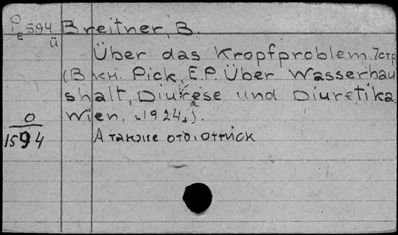 Pe 594 Breitner, B.
ü
Über das Kropfproblem. 7стр
(В кн. Pick, E.P. Über Wasserhau
shalt, Diurese und Diuretika.
Wien, 1924.)
0
1594 А также отд. оттиск